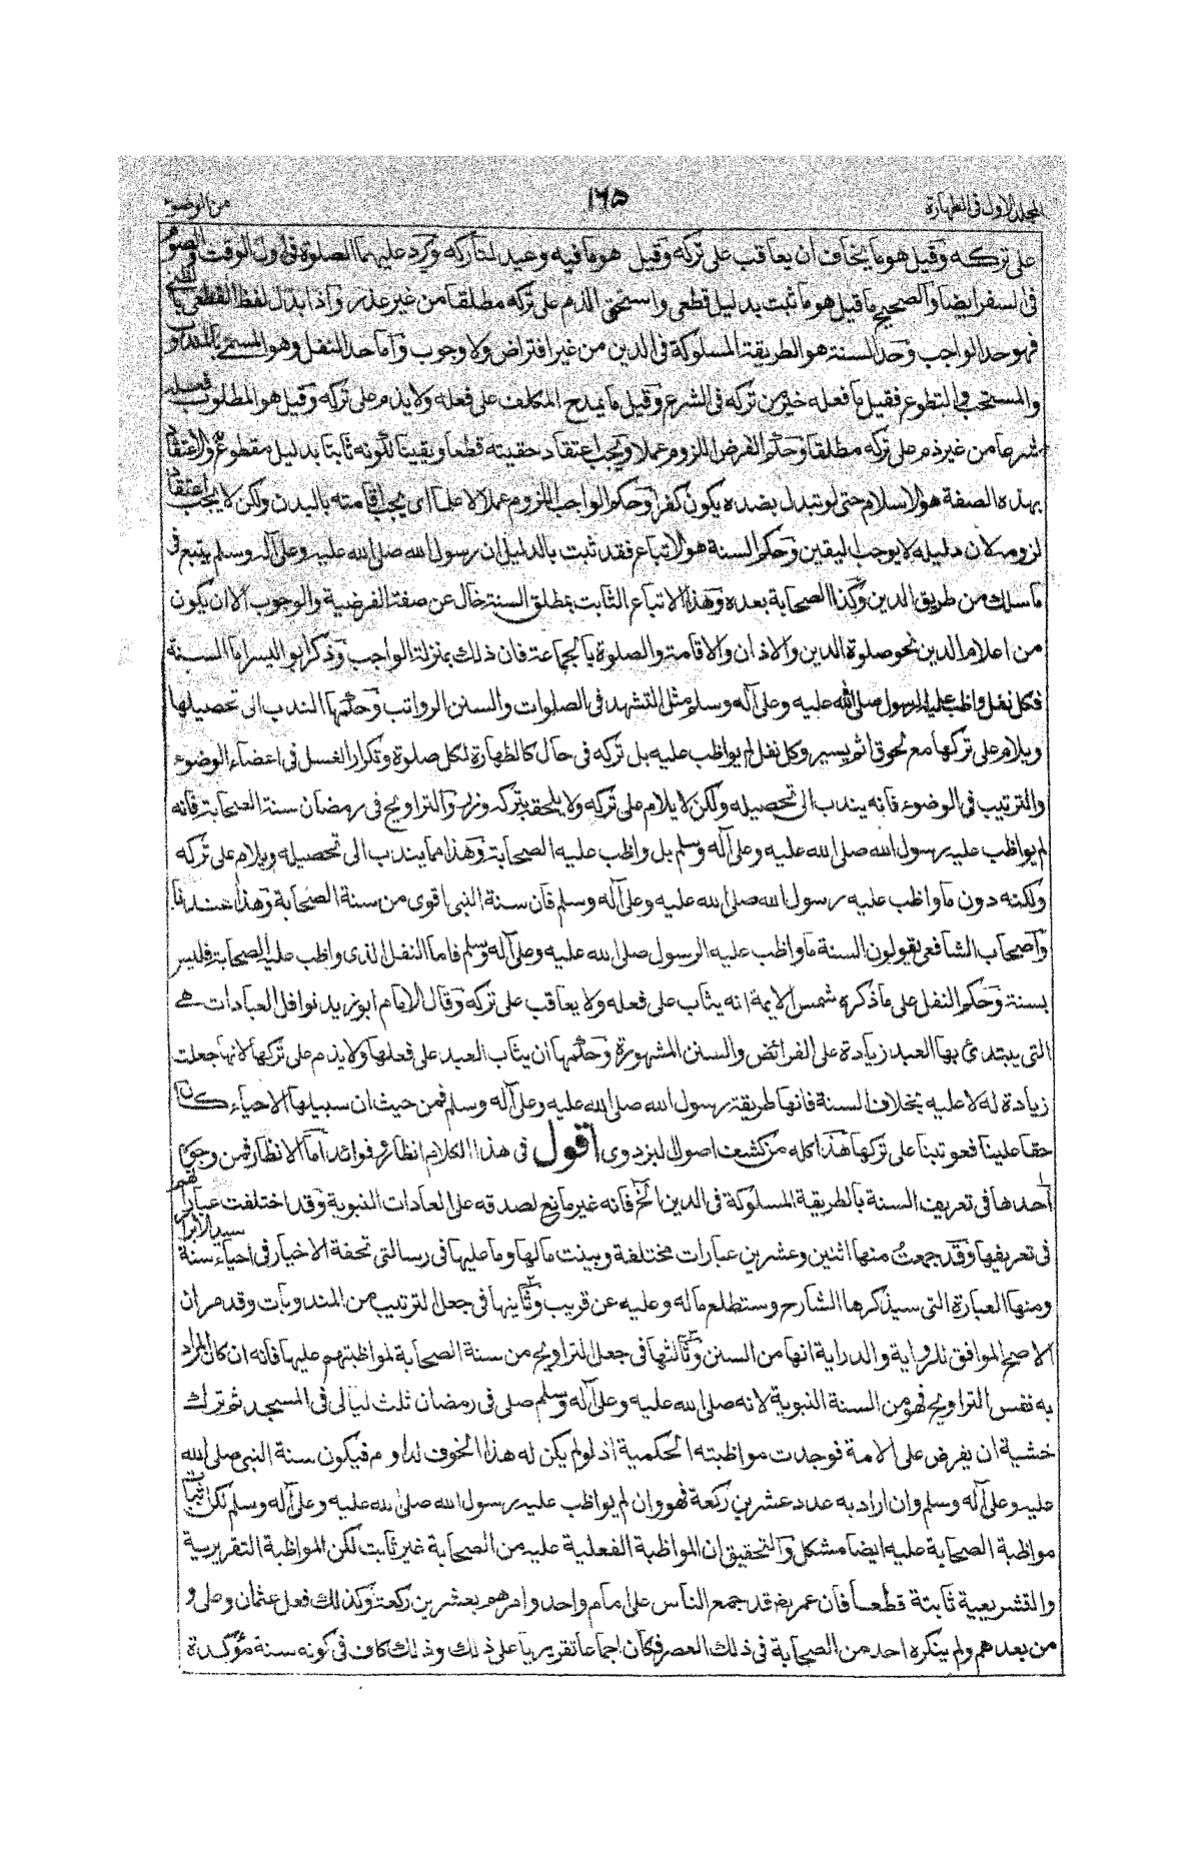 المجلد الاول فى الطهارة ١٦٥ من الوضوء
على تركه وقيل هو ما يخاف ان يعاقب على تركه وقيل هو ما فيه وعيد لتاركه ويرد عليهما الصلوة فى اول الوقت والصوم
فى السفر ايضا والصحيح ما قيل هو ما ثبت بدليل قطعى واستحق الذم على تركه مطلقا من غير عذر واذا بدل لفظ القطعى بالظنى
فهو حد الواجب وحد السنة هو الطريقة المسلوكة فى الدين من غير افتراض ولا وجوب واما حد النفل وهو المسمى بالمندوب
والمستحب والتطوع فقيل ما فعله خير من تركه فى الشرع وقيل ما يمدح المكلف على فعله ولا يذم على تركه وقيل هو المطلوب فعله
شرعا من غير ذم على تركه مطلقا وحكم الفرض اللزوم عملا ويجب اعتقاد حقيته قطعا ويقينا لكونه ثابتا بدليل مقطوع والاعتقاد
بهذه الصفة هو الاسلام حتى لو تبدل بضده يكون كفرا وحكم الواجب اللزوم عملا لا علما اى يجب اقامته بالبدن ولكن لا يجب اعتقاد
لزومه لان دليله لا يوجب اليقين وحكم السنة هو الاتباع فقد ثبت بالدليل ان رسول الله صلى الله عليه وعلى آله وسلم يتبع فى
ما سلك من طريق الدين وكذا الصحابة بعده وهذا الاتباع الثابت بمطلق السنة خال عن صفة الفرضية والوجوب الا ان يكون
من اعلام الدين نحو صلوة الدين والاذان والاقامة والصلوة بالجماعة فان ذلك بمنزلة الواجب وذكر ابو اليسر اما السنة
فكل نفل واظب عليه الرسول صلى الله عليه وعلى آله وسلم مثل التشهد فى الصلوات والسنن الرواتب وحكمها الندب الى تحصيلها
ويلام على تركها مع لحوق اثم يسير وكل نفل لم يواظب عليه بل تركه فى حال كالطهارة لكل صلوة وتكرار الغسل فى اعضاء الوضوء
والترتيب فى الوضوء فانه يندب الى تحصيله ولكن لا يلام على تركه ولا يلحقه بتركه وزر والتراويح فى رمضان سنة الصحابة فانه
لم يواظب عليه رسول الله صلى الله عليه وعلى آله وسلم بل واظب عليه الصحابة وهذا مما يندب الى تحصيله ويلام على تركه
ولكنه دون ما واظب عليه رسول الله صلى الله عليه وعلى آله وسلم فان سنة النبى اقوى من سنة الصحابة وهذا عندنا
واصحاب الشافعى يقولون السنة ما واظب عليه الرسول صلى الله عليه وعلى آله وسلم فاما النفل الذى واظب عليه الصحابة فليس
بسنة وحكم النفل على ما ذكره شمس الايمة انه يثاب على فعله ولا يعاقب على تركه وقال الامام ابو زيد نوافل العبادات هى
التى يبتدئ بها العبد زيادة على الفرائض والسنن المشهورة وحكمها ان يثاب العبد على فعلها ولا يذم على تركها لانها جعلت
زيادة له لا عليه بخلاف السنة فانها طريقة رسول الله صلى الله عليه وعلى آله وسلم فمن حيث ان سبيلها الاحياء كان
حقا علينا فعوتبنا على تركها هذا كله من كشف اصول البزدوى اقول فى هذا الكلام انظار وفوائد اما الانظار فمن وجوه
احدها فى تعريف السنة بالطريقة المسلوكة فى الدين الخ فانه غير مانع لصدقه على العادات النبوية وقد اختلفت عباراتهم
فى تعريفها وقد جمعت منها اثنين وعشرين عبارات مختلفة وبينت مالها وما عليها فى رسالتى تحفة الاخيار فى احياء سنة سيد الابرار
ومنها العبارة التى سيذكرها الشارح وستطلع ماله وعليه عن قريب وثانيها فى جعل الترتيب من المندوبات وقد مر ان
الاصح الموافق للرواية والدراية انها من السنن وثالثها فى جعل التراويح من سنة الصحابة لمواظبتهم عليها فانه ان كان المراد
به نفس التراويح فهو من السنة النبوية لانه صلى الله عليه وعلى آله وسلم صلى فى رمضان ثلث ليالى فى المسجد ثم ترك
خشية ان يفرض على الامة فوجدت مواظبته الحكمية اذ لو لم يكن له هذا الخوف لداوم فيكون سنة النبى صلى الله
عليه وعلى آله وسلم وان اراد به عدد عشرين ركعة فهو وان لم يواظب عليه رسول الله صلى الله عليه وعلى آله وسلم لكن اثبات
مواظبة الصحابة عليه ايضا مشكل والتحقيق ان المواظبة الفعلية عليه من الصحابة غير ثابت لكن المواظبة التقريرية
والتشريعية ثابتة قطعا فان عمر رض قد جمع الناس على امام واحد وامرهم بعشرين ركعة وكذلك فعل عثمان وعلى و
من بعدهم ولم ينكره احد من الصحابة فى ذلك العصر فكان اجماعا تقريريا على ذلك وذلك كاف فى كونه سنة مؤكدة